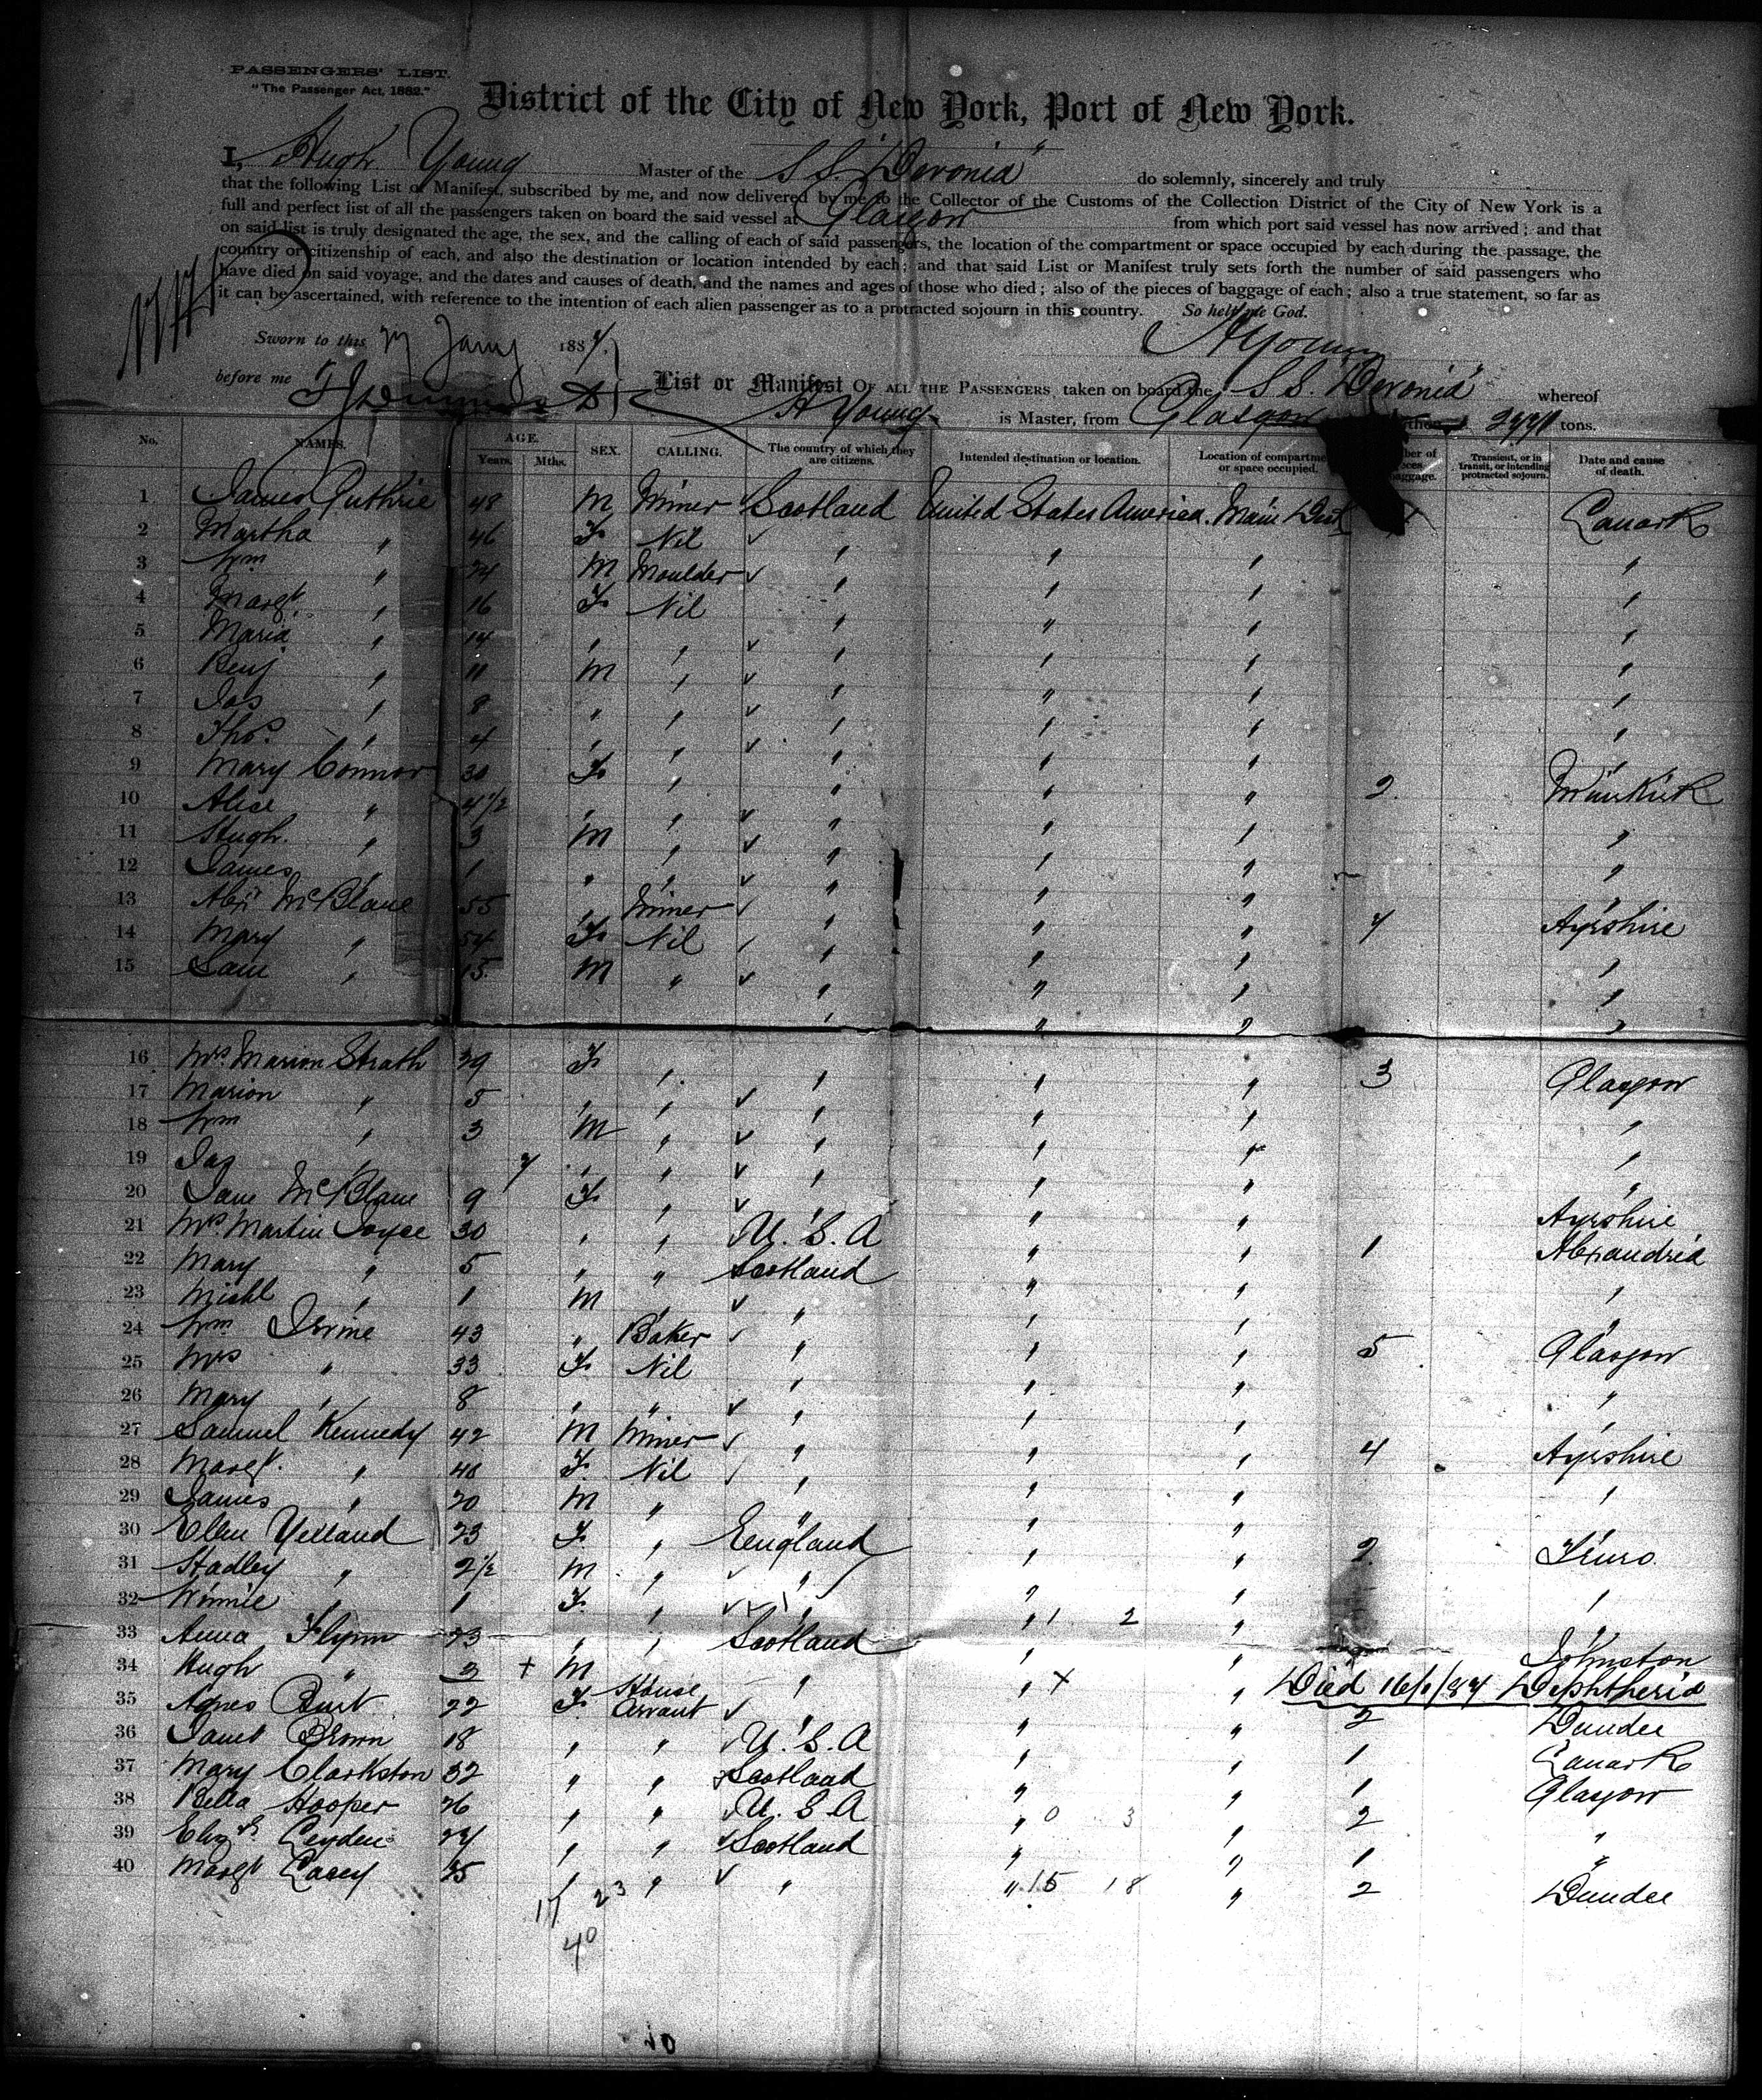 PASSENGERS' LIST.
"The Passenger Act, 1882."
District of the City of New York, Port of New York.
I, Hugh Young Master of the S.S. "Devonia" do solemnly, sincerely and truly
that the following List or Manifest, subscribed by me, and now delivered by me to the Collector of the Customs of the Collection District of the City of New York is a
full and perfect list of all the passengers taken on board the said vessel at Glasgow from which port said vessel has now arrived; and that
on said list is truly designated the age, the sex, and the calling of each of said passengers, the location of the compartment or space occupied by each during the passage, the
country or citizenship of each, and also the destination or location intended by each; and that said List or Manifest truly sets forth the number of said passengers who
have died on said voyage, and the dates and causes of death, and the names and ages of those who died; also of the pieces of baggage of each; also a true statement, so far as
it can be ascertained, with reference to the intention of each alien passenger as to a protracted sojourn in this country. So help me God.
Sworn to this Jany 1887. HYoung
before me
List or Manifest OF ALL THE PASSENGERS taken on board the S.S. "Devonia" whereof
H Young is Master, from Glasgow tons.
No. NAMES. AGE. Years. Mths. SEX. CALLING. The country of which they are citizens. Intended destination or location. Location of compartment or space occupied. Number of pieces baggage. Transient, or in transit, or intending protracted sojourn. Date and cause of death.
1 James Guthrie 48 M Miner Scotland United States America. Main Lanark
2 Martha " 46 F Nil " " " "
3 Wm " 24 M Moulder " " " "
4 Margt " 16 F Nil " " " "
5 Maria " 14 " " " " " "
6 Benj " 11 M " " " " "
7 Jas " 8 " " " " " "
8 Thos " 4 " " " " " "
9 Mary Connor 30 F " " " " 2
10 Alice " 4 1/2 " " " " " "
11 Hugh " 3 M " " " " "
12 James " 1 " " " " " "
13 Alexr McBlane 55 " Miner " " " 4 Ayrshire
14 Mary " 54 F Nil " " " "
15 Sam " 15 M " " " " "
16 Mrs Marion Strath 39 F " " " " 3 Glasgow
17 Marion " 5 " " " " " "
18 Wm " 3 M " " " " "
19 Jas " 7 " " " " " "
20 Jane McBlane 9 F " " " " Ayrshire
21 Mrs Martin Joyce 30 " " U.S.A " " 1 Alexandria
22 Mary " 5 " " Scotland " " "
23 Michl " 1 M " " " " "
24 Wm Irvine 43 " Baker " " " 5 Glasgow
25 Mrs " 33 F Nil " " " "
26 Mary " 8 " " " " " "
27 Samuel Kennedy 42 M Miner " " " 4 Ayrshire
28 Margt " 40 F Nil " " " "
29 James " 20 M " " " " "
30 Ellen Yelland 23 F " England " " 2 Truro
31 Stadley " 2 1/2 M " " " " "
32 Winnie " 1 F " " " " "
33 Anna Flynn 23 " " Scotland " " Johnston
34 Hugh " 3 + M " " " Died 16/1/87 Diphtheria
35 Agnes Burt 22 F House Servant " " " 2 Dundee
36 Janet Brown 18 " " U.S.A " " 1 Lanark
37 Mary Clarkston 32 " " Scotland " " 1 Glasgow
38 Bella Hooper 26 " " U.S.A " " 2 "
39 Elizth Leyden 24 " " Scotland " " 1 "
40 Margt Casey 35 " " " " " 2 Dundee
17 23 15 18
40